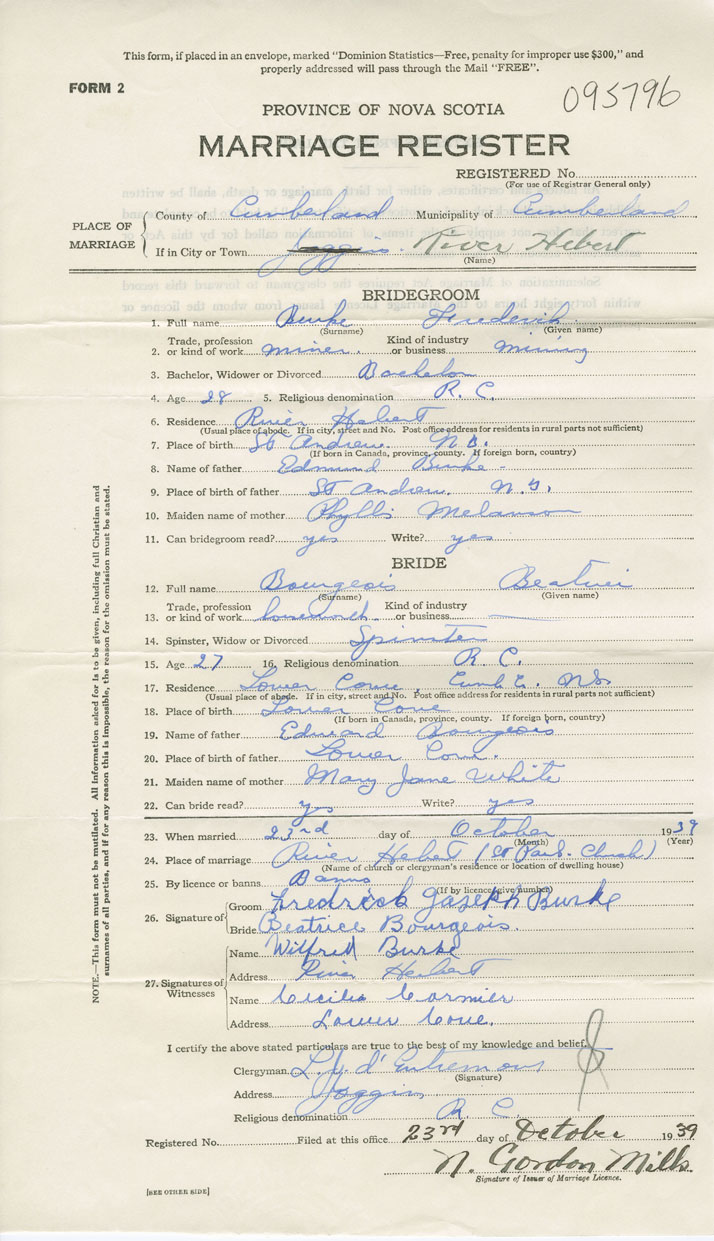 This form, if placed in an envelope, marked "Dominion Statistics—Free, penalty for improper use $300," and
properly addressed will pass through the Mail "FREE".
FORM 2
095796
PROVINCE OF NOVA SCOTIA
MARRIAGE REGISTER
REGISTERED No.
(For use of Registrar General only)
PLACE OF MARRIAGE
County of Cumberland Municipality of Cumberland
If in City or Town Joggins. River Hebert
(Name)
BRIDEGROOM
1. Full name Burke Frederick
(Surname) (Given name)
2. Trade, profession or kind of work miner. Kind of industry or business mining
3. Bachelor, Widower or Divorced Bachelor
4. Age 28 5. Religious denomination R. C.
6. Residence River Hebert
(Usual place of abode. If in city, street and No. Post office address for residents in rural parts not sufficient)
7. Place of birth St Andrew. N.B.
(If born in Canada, province, county. If foreign born, country)
8. Name of father Edmund Burke -
9. Place of birth of father St Andrew. N.
10. Maiden name of mother Phyllis Melanson
11. Can bridegroom read? yes Write? yes
BRIDE
12. Full name Bourgeois Beatrice
(Surname) (Given name)
13. Trade, profession or kind of work housework Kind of industry or business
14. Spinster, Widow or Divorced Spinster
15. Age 27 16. Religious denomination R. C.
17. Residence Lower Cove, Cumb. Ns
(Usual place of abode. If in city, street and No. Post office address for residents in rural parts not sufficient)
18. Place of birth Lower Cove
(If born in Canada, province, county. If foreign born, country)
19. Name of father Edward Bourgeois
20. Place of birth of father Lower Cove.
21. Maiden name of mother Mary Jane White
22. Can bride read? yes Write? yes
23. When married 23rd day of October 1939
(Month) (Year)
24. Place of marriage River Hebert (St Pauls Church)
(Name of church or clergyman's residence or location of dwelling house)
25. By licence or banns Banns
(If by licence, give number)
26. Signature of
Groom Fredrick Jaseph Burke
Bride Beatrice Bourgeois.
27. Signatures of Witnesses
Name Wilfred Burke
Address River Hebert
Name Cecilia Cormier
Address Lower Cove.
I certify the above stated particulars are true to the best of my knowledge and belief.
Clergyman L. J. d'Entremont
(Signature)
Address Joggins
Religious denomination R. C.
Registered No. Filed at this office 23rd day of October 1939
N. Gordon Mills.
Signature of Issuer of Marriage Licence.
[SEE OTHER SIDE]
NOTE.—This form must not be mutilated. All information asked for is to be given, including full Christian and
surnames of all parties, and if for any reason this is impossible, the reason for the omission must be stated.